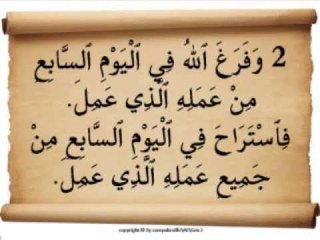 2 وَفَرَغَ ٱللهُ فِي ٱلْيَوْمِ ٱلسَّابِعِ
مِنْ عَمَلِهِ ٱلَّذِي عَمِلَ.
فَٱسْتَرَاحَ فِي ٱلْيَوْمِ ٱلسَّابِعِ مِنْ
جَمِيعِ عَمَلِهِ ٱلَّذِي عَمِلَ.
copyright © by